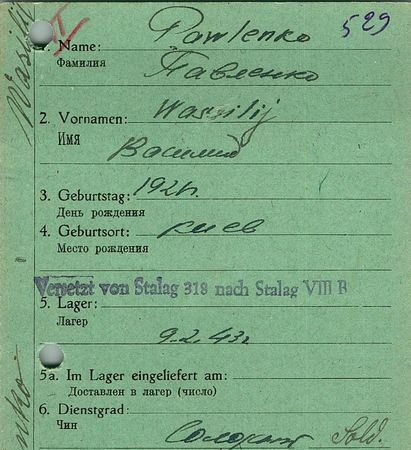 529
1. Name: Pawlenko
Фамилия Павленко
2. Vornamen: Wassilij
Имя Василий
3. Geburtstag: 192
День рождения
4. Geburtsort: Киев
Место рождения
Versetzt von Stalag 318 nach Stalag VIII B
5. Lager:
Лагер 9.2.43г.
5a. Im Lager eingeliefert am:
Доставлен в лагер (число)
6. Dienstgrad:
Чин Sold.
Wassilij
nko